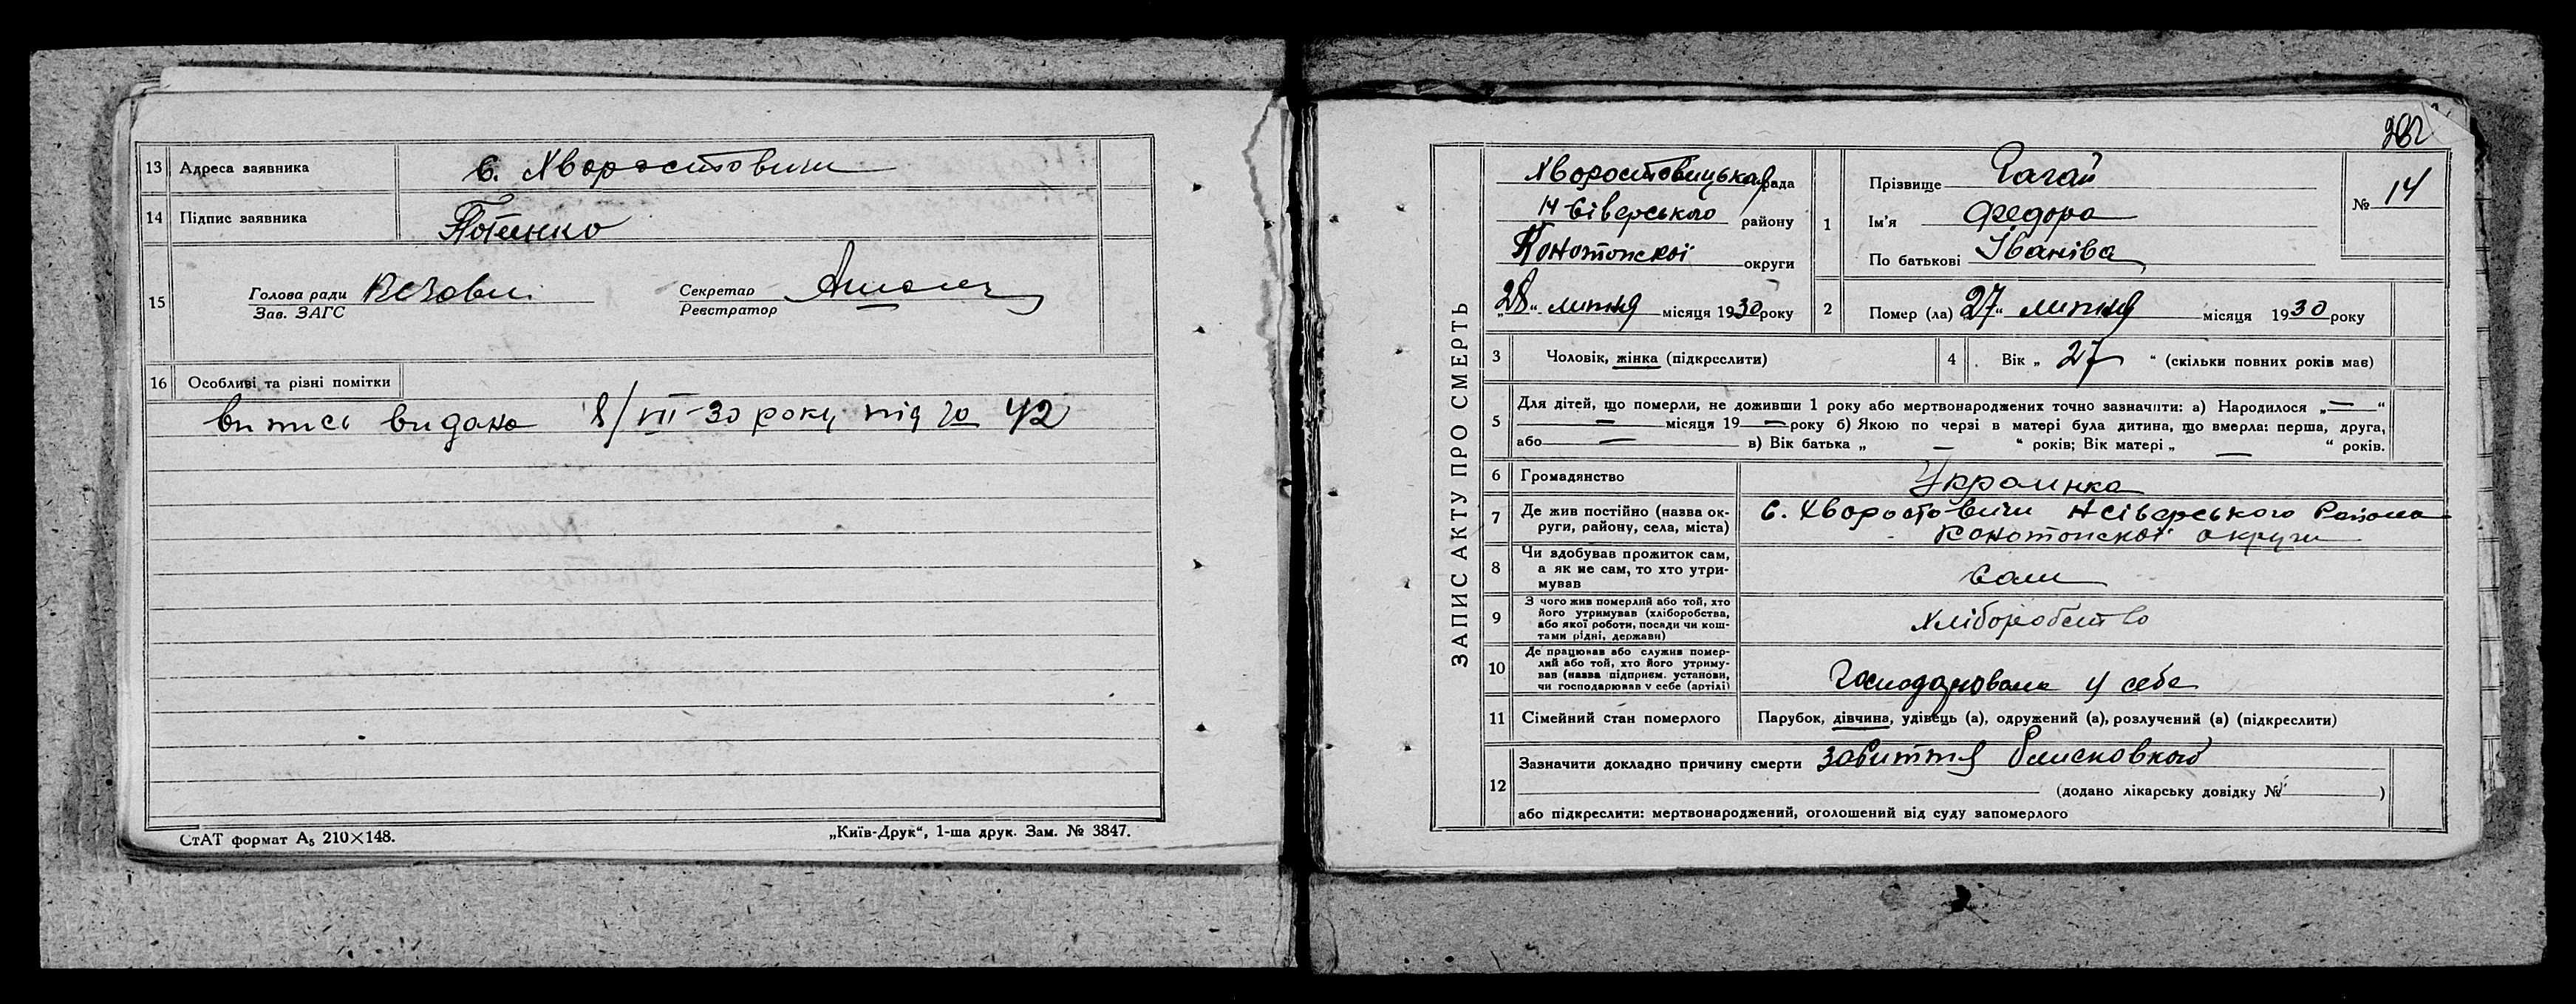 13 Адреса заявника с. Хворостовичи
14 Підпис заявника Потенко
15 Голова ради
Зав. ЗАГС
Секретар
Реєстратор
16 Особливі та різні помітки
випись видана 8/VII-30 року під № 42
СтАТ формат А5 210×148.
„Київ-Друк“, 1-ша друк. Зам. № 3847.
282
ЗАПИС АКТУ ПРО СМЕРТЬ
Хворостовицька рада
Н Сіверського району
Конотопскоі округи
„28“ липня місяця 1930 року
1 Прізвище Гагай
Ім'я Федора
По батькові Іваніва
№ 14
2 Помер (ла) 27“ липня місяця 1930 року
3 Чоловік, жінка (підкреслити)
4 Вік „ 27 “ (скільки повних років має)
5 Для дітей, що померли, не доживши 1 року або мертвонароджених точно зазначити: а) Народилося „—“
— місяця 19 — року б) Якою по черзі в матері була дитина, що вмерла: перша, друга,
або — в) Вік батька „ — “ років; Вік матері „ — “ років.
6 Громадянство Украинка
7 Де жив постійно (назва ок-
руги, району, села, міста) с. Хворостовичи Н Сіверського Района
Конотопскоі округи
8 Чи здобував прожиток сам,
а як не сам, то хто утри-
мував сам
9 З чого жив померлий або той, хто
його утримував (хліборобства,
або якої роботи, посади чи кош-
тами рідні, держави) Хліборобство
10 Де працював або служив помер-
лий або той, хто його утриму-
вав (назва підприєм. установи,
чи господарював у себе (артілі) Господарювала у себе
11 Сімейний стан померлого Парубок, дівчина, удівець (а), одружений (а), розлучений (а) (підкреслити)
12 Зазначити докладно причину смерти забиття
(додано лікарську довідку № )
або підкреслити: мертвонароджений, оголошений від суду запомерлого